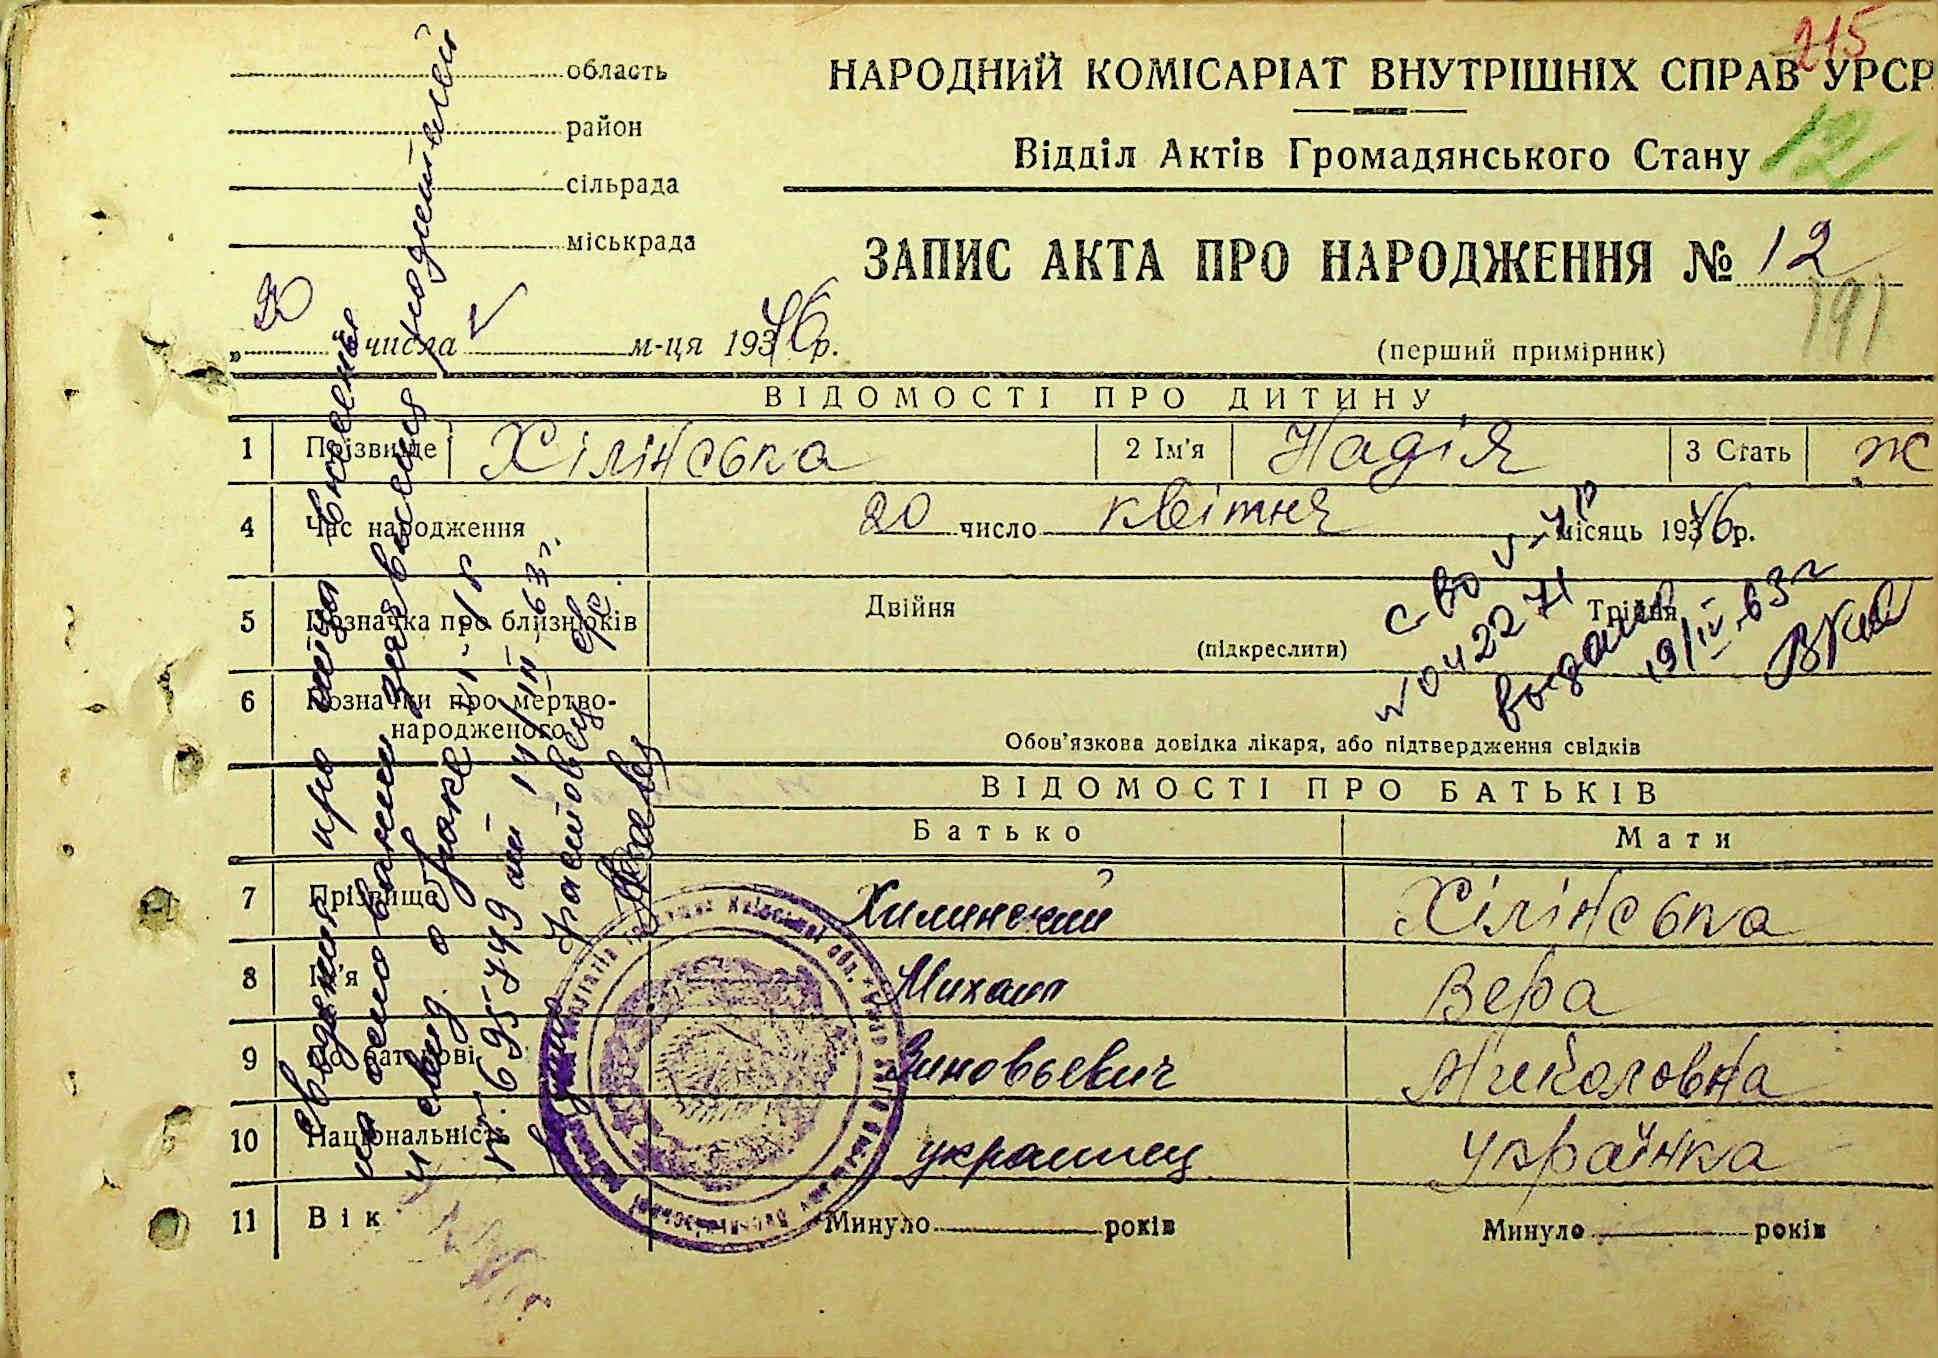 215
область
район
сільрада
міськрада
НАРОДНИЙ КОМІСАРІАТ ВНУТРІШНІХ СПРАВ УРСР
Відділ Актів Громадянського Стану
121
ЗАПИС АКТА ПРО НАРОДЖЕННЯ № 12
191
„20 числа V м-ця 1946 р.
(перший примірник)
ВІДОМОСТІ ПРО ДИТИНУ
1 Прізвище Хілінська 2 Ім'я Надія 3 Стать ж
4 Час народження 20 число квітня місяць 1946 р.
5 Позначка про близнюків Двійня (підкреслити) Трійня
6 Позначки про мертвонародженого
Обов'язкова довідка лікаря, або підтвердження свідків
ВІДОМОСТІ ПРО БАТЬКІВ
Батько Мати
7 Прізвище Хилинский Хілінська
8 Ім'я Михаил Вера
9 По батькові Зиновьевич Миколовна
10 Національність украинец українка
11 Вік Минуло років Минуло років
св во V-
№ 042271
выдано
19/IV-63 г
на основании заявления
и свид. о браке